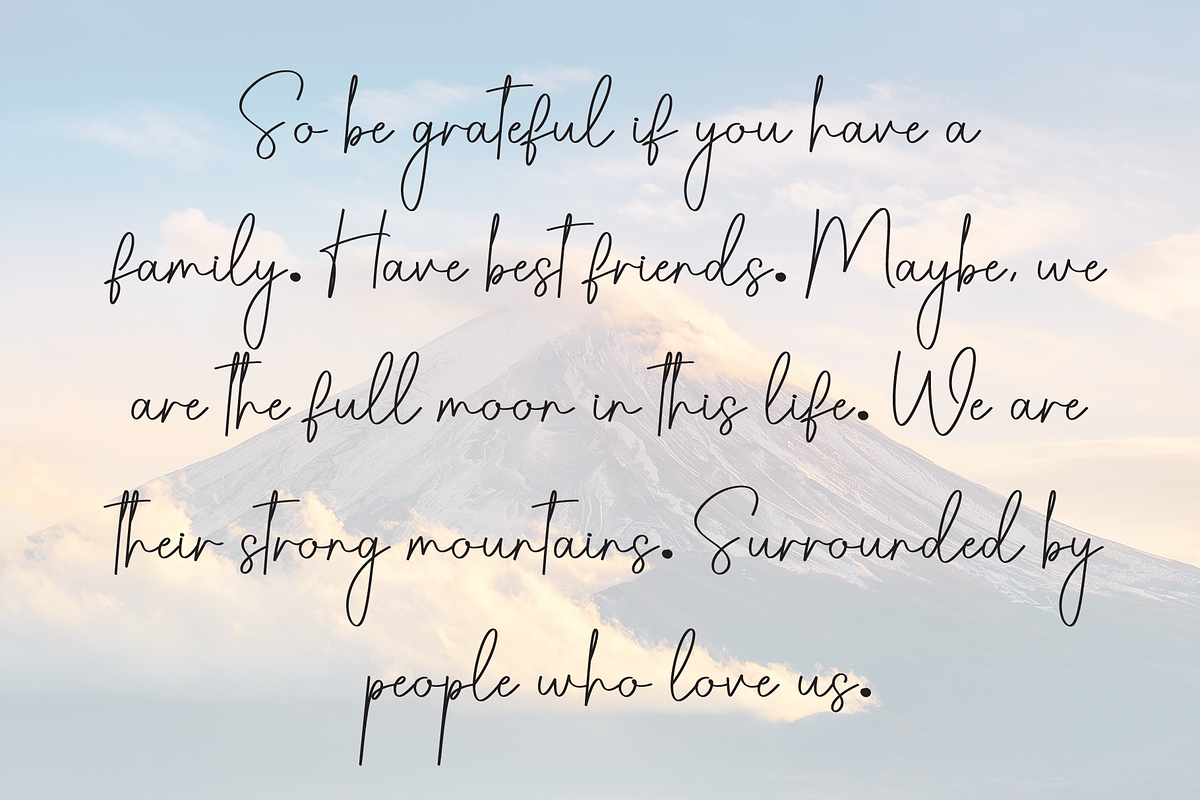 So be grateful if you have a
family. Have best friends. Maybe, we
are the full moon in this life. We are
their strong mountains. Surrounded by
people who love us.